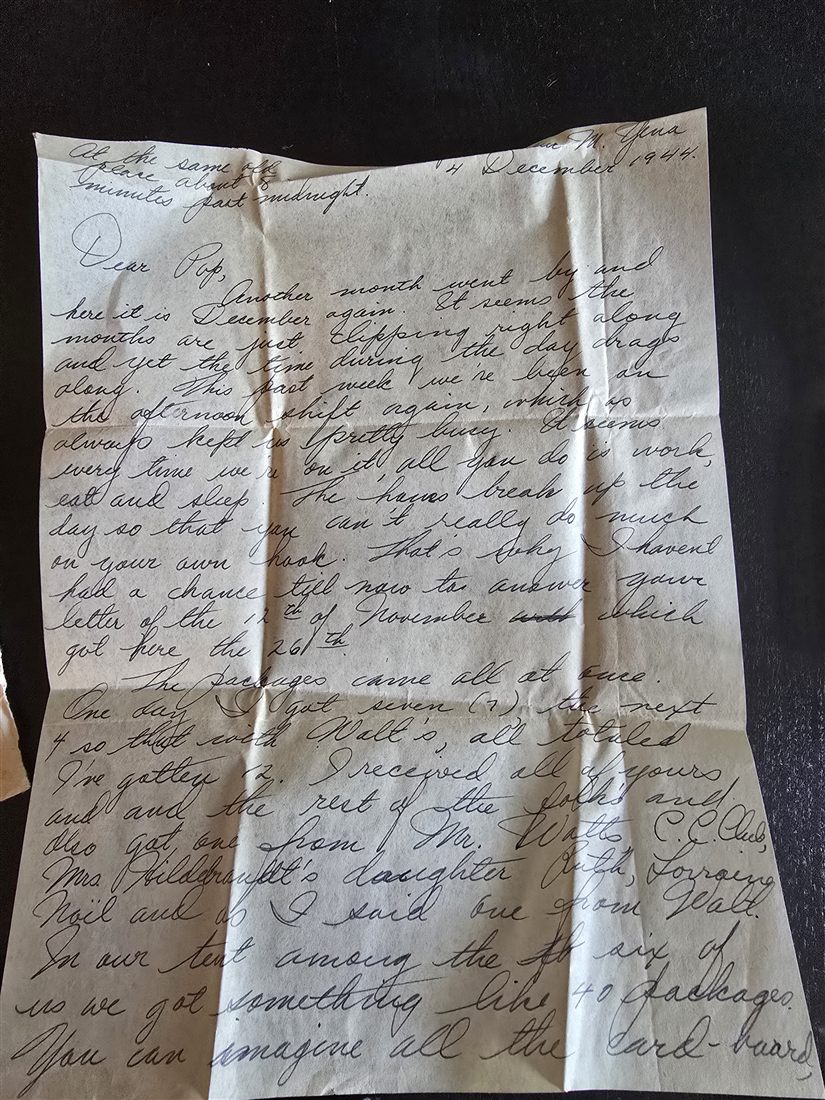 M. Yena
At the same old
4 December 1944.
place about 8
minutes past midnight.
Dear Pop,
Another month went by and
here it is December again. It seems the
months are just clipping right along
and yet the time during the day drags
along. This past week we're been on
the afternoon shift again, which as
always kept us pretty busy. It seems
every time we're on it, all you do is work,
eat and sleep. The hours break up the
day so that you can't really do much
on your own hook. That's why I haven't
had a chance till now to answer your
letter of the 12th of November which
got here the 26th.
The packages came all at once.
One day I got seven (7) the next
4 so that with Walt's, all totaled
I've gotten 12. I received all of yours
and and the rest of the folks and
also got one from Mr. Watts, C.C. Club,
Mrs Hildebrandt's daughter Ruth, Lorraine
Noil and as I said one from Walt.
In our tent among the six of
us we got something like 40 packages.
You can imagine all the card-board,